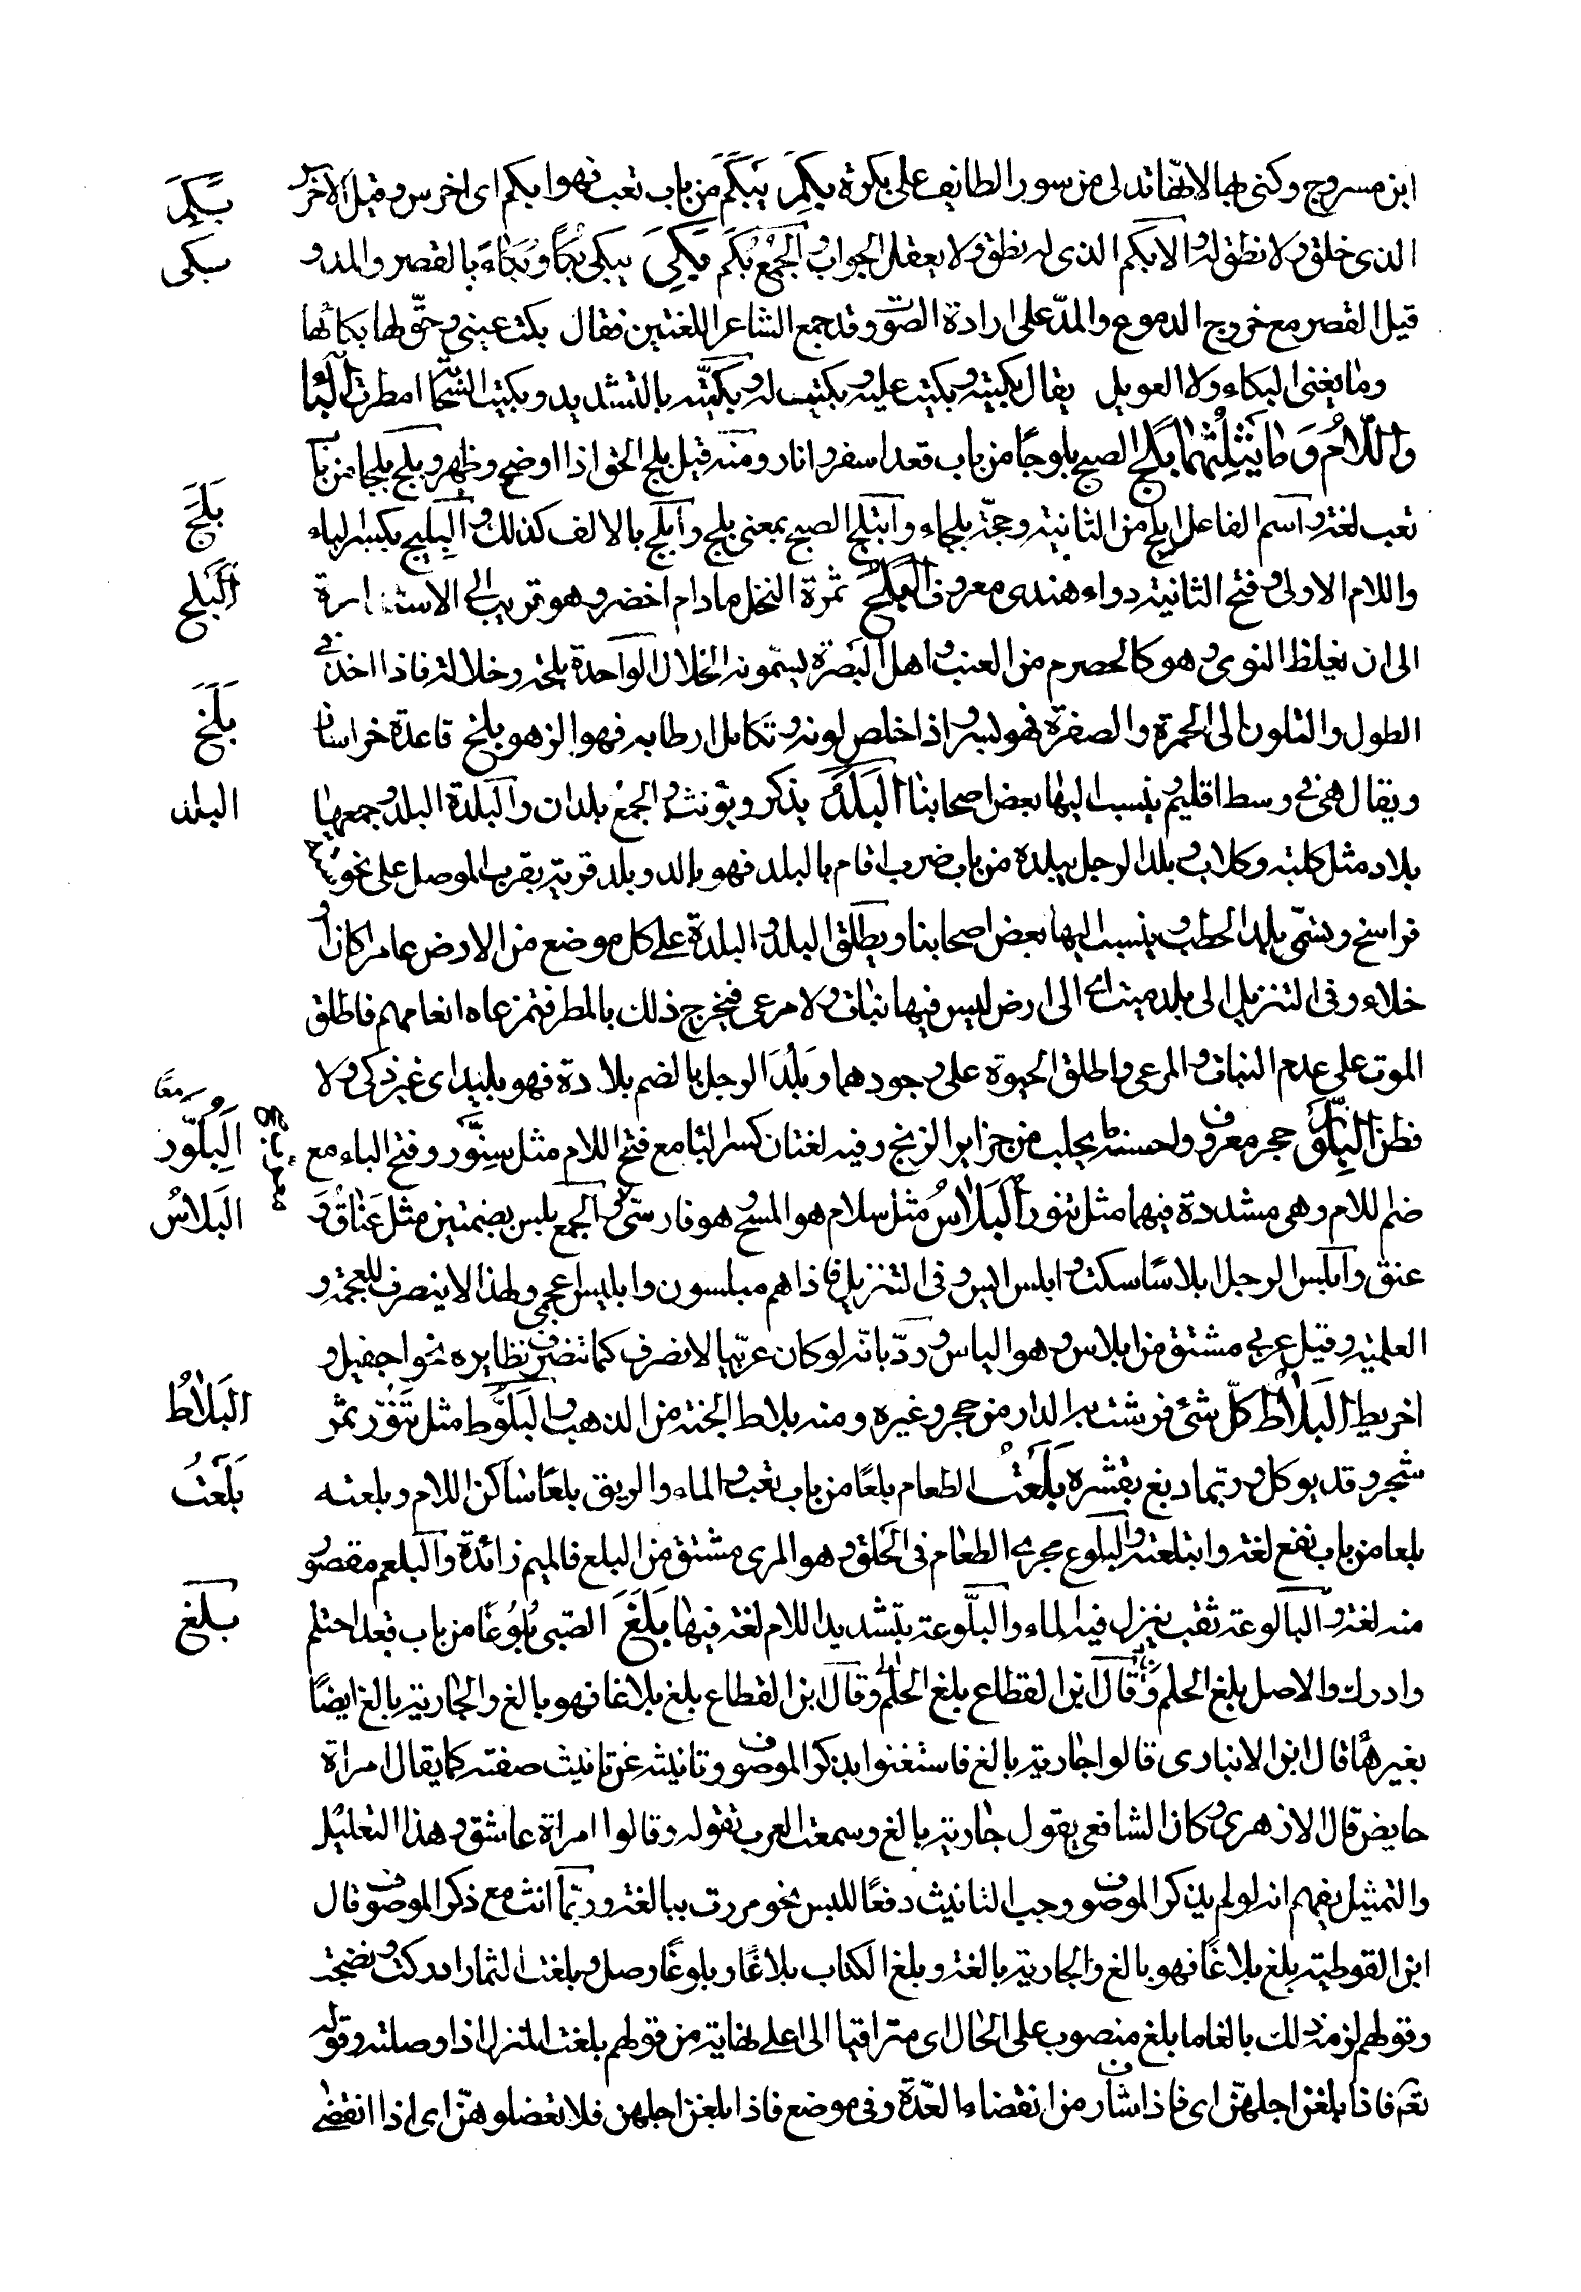 ابن مسروح وكنى بها لانه تدلى من سور الطايف على بكرة بَكِمَ يَبكَمُ من باب تعب فهو ابكم اى اخرس وقيل الاخرس
بَكِمَ
الذى خلق ولا نطق له والابكم الذى له نطق ولا يعقل الجواب والجمع بُكم بَكى يبكى بُكًا وبُكاءً بالقصر والمد و
بكى
قيل القصر مع خروج الدموع والمدّ على ارادة الصّوت وقد جمع الشاعر اللغتين فقال بكت عينى وحقّ لها بكاها
وما يغنى البكاء ولا العويل يقال بكيته وبكيت عليه وبكيت له وبكّيته بالتشديد وبكيت السّحاب امطرت البَاء
واللّامُ وَمَا يَثلِثُهُمَا بَلَجَ الصبح بلوجًا من باب قعد اسفر وانار ومنه قيل بلج الحق اذا اوضح وظهر وبلج بلجا من باب
بَلَجَ
تعب لغة واسم الفاعل ابلج من الثانية وحجّة بلجاء وابتلج الصبح بمعنى بلج وابلج بالالف كذلك والبِليلج بكسر الباء
واللام الاولى وفتح الثانية دواء هندى معروف البَلَحُ ثمرة النخل مادام اخضر وهو قريب الى الاستدارة
البَلَحُ
الى ان يغلظ النوى وهو كالحصرم من العنب واهل البصرة يسمّونه الخلال الواحدة بلحة وخلالة فاذا اخذ فى
الطول والتلون الى الحمرة والصفرة فهو بسر واذا خلص لونه وتكامل ارطابه فهو الزهو بلخ قاعدة خراسان
بَلَخَ
ويقال هى فى وسط اقليم وينسب اليها بعض اصحابنا البَلَدُ يذكر ويؤنث والجمع بلدان والبلدة البلد وجمعها
البلد
بلاد مثل كلبة وكلاب وبلد الرجل يبلد من باب ضرب اقام بالبلد فهو بالد وبلد قرية بقرب الموصل على نحو
فراسخ وتسمّى بلد الحطب وينسب اليها بعض اصحابنا ويطلق البلد والبلدة على كل موضع من الارض عامرا كان او
خلاء وفى التنزيل الى بلد ميت اى الى ارض ليس فيها نبات ولا مرعى فيخرج ذلك بالمطر فترعاه انعامهم فاطلق
الموت على عدم النبات والمرعى واطلق الحيوة على وجودهما وبَلُدَ الرجل بالضم بلادة فهو بليد اى غير ذكى ولا
معًا
فطن البِلَّور حجر معروف واحسنه ما يجلب من جزاير الزنج وفيه لغتان كسر الباء مع فتح اللام مثل سِنَّور وفتح الباء مع
البِلّور
ضم اللام وهى مشددة فيهما مثل تنّور البَلاسُ مثل سلام هو المسح وهو فارسى والجمع بلس بضمتين مثل عَناق و
البلاسُ
عنق وابلس الرجل ابلاسًا سكت وابلس ايس وفى التنزيل فاذا هم مبلسون وابليس اعجمى ولهذا لا ينصرف للعجمة و
العلمية وقيل عربى مشتق من ابلاس وهو الياس وردّ بانه لو كان عربيا لانصرف كما تنصرف نظايره نحو اجفيل و
اخريط البَلاطُ كلّ شئ فرشت به الدار من حجر وغيره ومنه بلاط الجنة من الذهب والبَلّوط مثل تَنّور ثمر
البَلاطُ
شجر وقد يوكل وربّما دبغ بقشره بَلَعتُ الطعام بلعًا من باب تعب والماء والريق بلعًا ساكن اللام وبلعته
بَلَعتُ
بلعا من باب نفع لغة وابتلعته والبلعوم مجرى الطعام فى الحلق وهو المرى مشتق من البلع فالميم زائدة والبلعم مقصور
منه لغة والبالوعة ثقب ينزل فيه الماء والبلّوعة بتشديد اللام لغة فيها بَلَغَ الصّبى بُلُوغًا من باب قعد احتلم
بلغ
وادرك والاصل بلغ الحلم وقال ابن القطاع بلغ الحلم وقال ابن القطاع بلغ بلاغا فهو بالغ والجارية بالغ ايضًا
بغير هاء قال ابن الانبارى قالوا جارية بالغ فاستغنوا بذكر الموصوف وتانيثه عن تانيث صفته كما يقال امراة
حايض قال الازهرى وكان الشافعى يقول جارية بالغ وسمعت العرب تقوله وقالوا امراة عاشق وهذا التعليل
والتمثيل يفهم انه لو لم يذكر الموصوف وجب التانيث دفعًا للبس نحو مررت ببالغة وربّما انث مع ذكر الموصوف قال
ابن القوطية بلغ بلاغًا فهو بالغ والجارية بالغة وبلغ الكتاب بلاغًا وبلوغًا وصل وبلغت الثمار ادركت ونضجت
وقولهم لزمه ذلك بالغا ما بلغ منصوب على الحال اى مترقيا الى اعلى نهايته من قولهم بلغت المنزل اذا وصلته وقوله
تعم فاذا بلغن اجلهنّ اى فاذا شارفن انقضاء العدّة وفى موضع فاذا بلغن اجلهن فلا تعضلوهنّ اى اذا انقضى